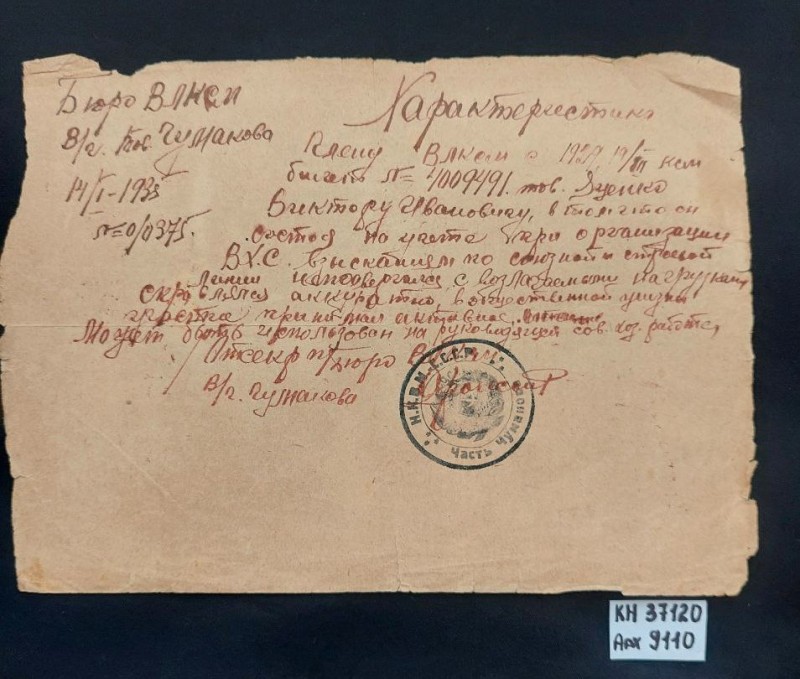 Бюро ВЛКСМ
В/ч. тов. Чумакова
14/I-1935
№ 0/0375.
Характеристика
Члену ВЛКСМ с 1929 19/III ксм
билет № 4009491. тов. Яценко
Виктору Ивановичу, в том что он
состоя на учете при организации
В.Х.С. взысканиям по союзной и строевой
линии неподвергался с возлагаемыми нагрузками
справлялся аккуратно, в общественной жизни
принимал активное
Может быть использован на руководящей сов. хоз. работе
Отсекр п/бюро
В/ч. Чумакова
Н.К.В.М. С.С.С.Р.
Часть Чумакова
КН 37120
Арх 9110